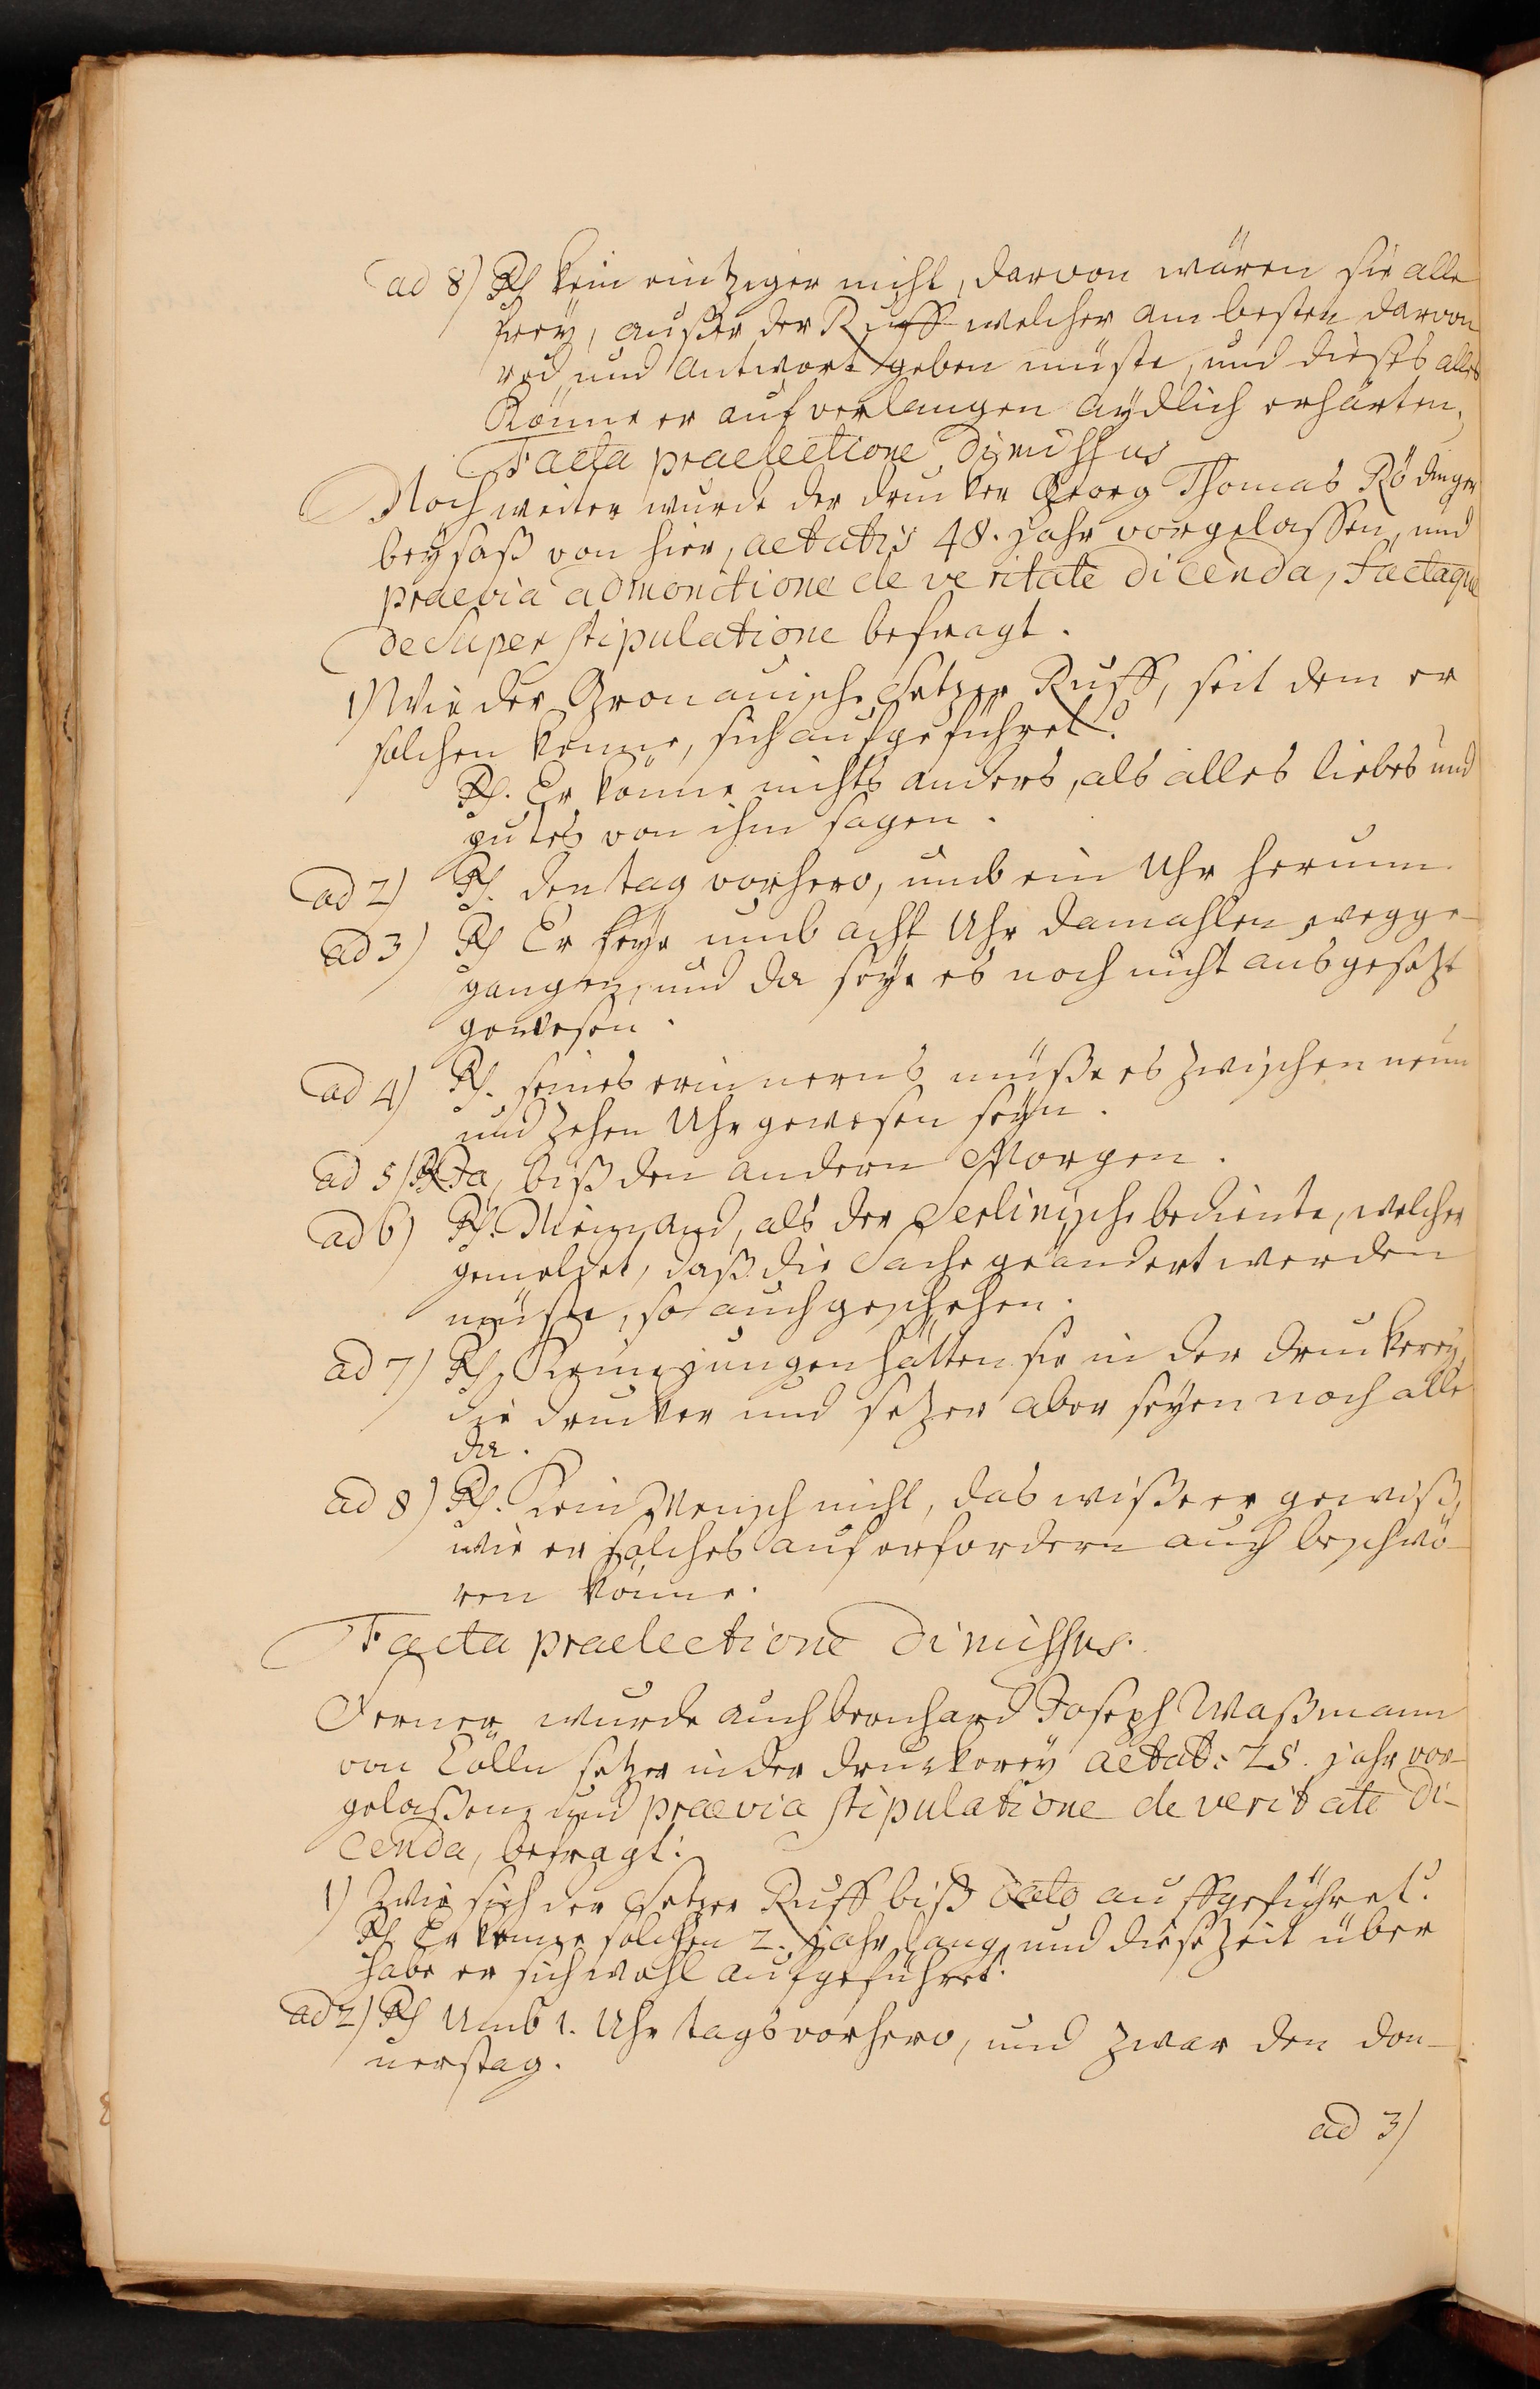 ad 8) Rh kein eintziger nicht, darvon wären sie alle
frey, außer der Ruff welcher am besten darvon
red und Antwort geben müste, und dieses alles
Könne er auf verlangen aydlich erhärten,
Facta praelectione dimissus
Noch weiter wurde der drucker Georg Thomas Rödinger
beysaß von hier, aetatis 48. Jahr vorgelassen, und
praevia admonitione de veritate dicenda, factaque
desuper stipulatione befragt.
1) Wie der Gronauische Setzer Ruff, seit dem er
solchen kenne, sich aufgeführet?
Rh. Er könne nichts anders, als alles liebes und
gutes von ihm sagen.
ad 2) Rh. den tag vorhero, umb ein Uhr herumm
ad 3) Rh Er seye umb acht Uhr damahlen wegge-
gangen, und da seye es noch nicht ausgesetzt
gewesen.
ad 4) Rh. seines erinnerns müße es zwischen neun
und zehen Uhr gewesen seyn.
ad 5) Rh Ja, biß den andern Morgen.
ad 6) Rh. Niemand, als der Serlinische bediente, welcher
gemeldet, daß die Sache geändert werden
müste, so auch geschehen.
ad 7) Rh. Keine jungen hätten sie in der druckerey,
die drucker und setzer aber seyen noch alle
da.
ad 8) Rh. Kein Mensch nicht, das wiße er gewiß,
wie er solches auf erfordern auch beschwö-
ren könne.
Facta praelectione dimissus.
Ferner wurde auch bernhard Joseph Waßmann
von Cölln setzer in der druckerey aetat: 25. jahr vor-
gelaßen, und praevia stipulatione de veritate di-
cenda, befragt:
1) Wie sich der Setzer Ruff biß dato auffgeführet?
Rh Er kenne solchen 2. jahr lang, und diese Zeit über
habe er sich wohl aufgeführet.
ad 2) Rh Umb 1. Uhr tags vorhero, und zwar den don-
nerstag.
ad 3)